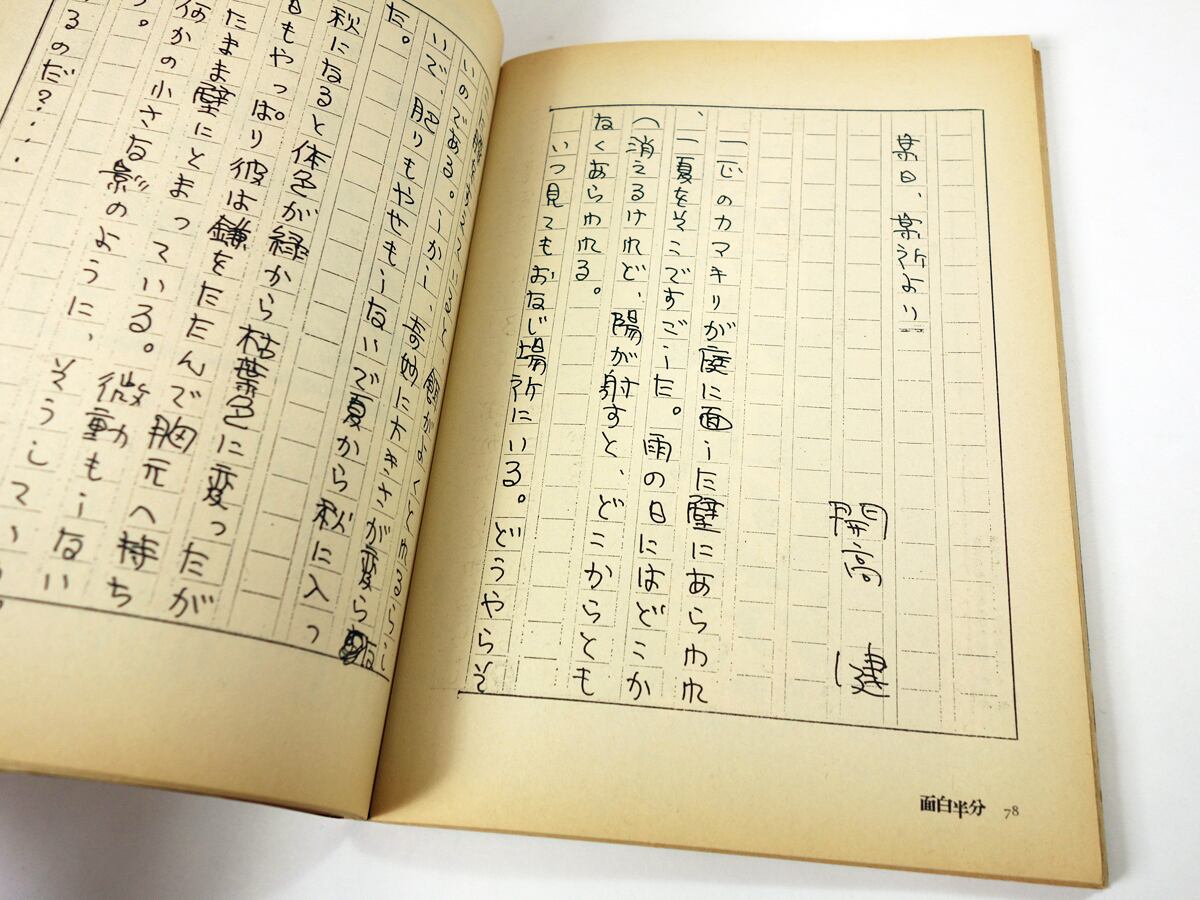 某日、某所より
開高 健
一匹のカマキリが庭に面した壁にあらわれ
、一夏をそこですごした。雨の日にはどこか
へ消えるけれど、陽が射すと、どこからとも
なくあらわれる。
いつ見てもおなじ場所にいる。どうやらそ
面白半分 78
いのである。しかし、奇妙に大きさが変らな
いで、肥りもやせもしないで夏から秋に入っ
た。
秋になると体色が緑から枯葉色に変ったが
日もやっぱり彼は鎌をたたんで胸元へ持ち
たまま壁にとまっている。微動もしない
何かの小さな影のように、そうしてい
。
るのだ?....